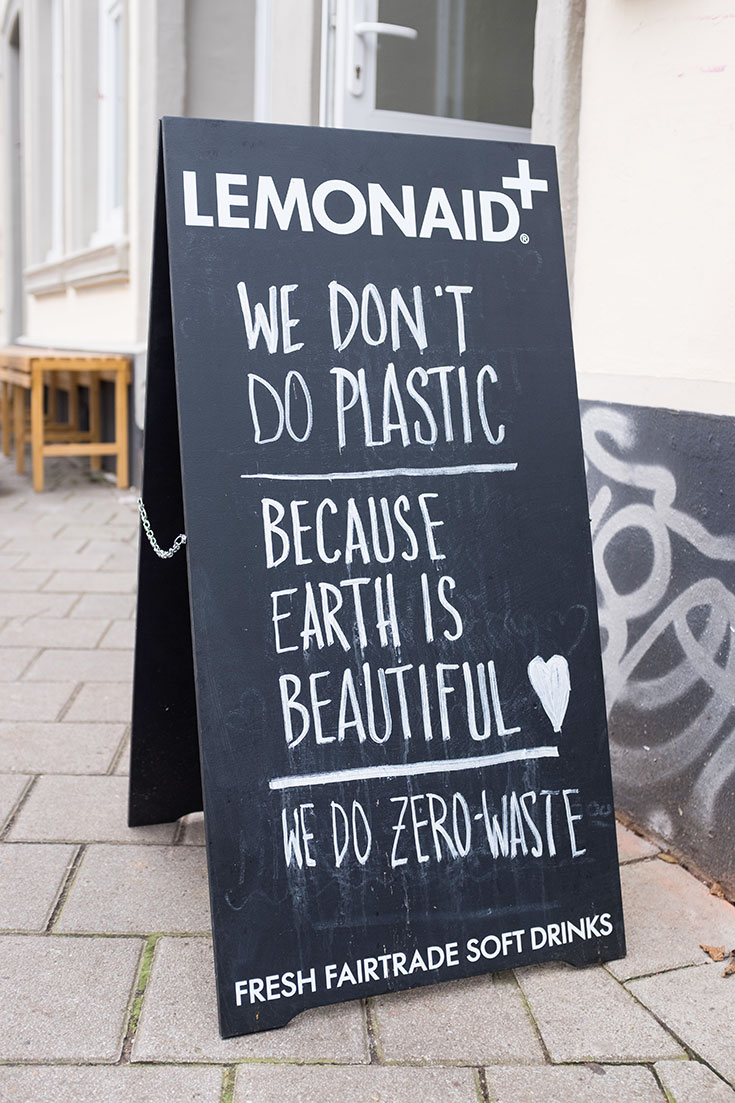 LEMONAID+®
WE DON'T
DO PLASTIC
BECAUSE
EARTH IS
BEAUTIFUL
WE DO ZERO-WASTE
FRESH FAIRTRADE SOFT DRINKS